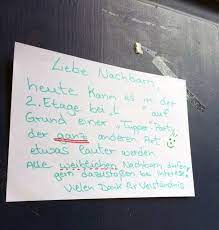 Liebe Nachbarn,
heute kann es in der
2. Etage bei auf
Grund einer "Tupper"-Party
der ganz anderen Art
etwas lauter werden.
Alle weiblichen Nachbarn dürfen
gern dazustoßen bei Interesse!
Vielen Dank für Verständnis